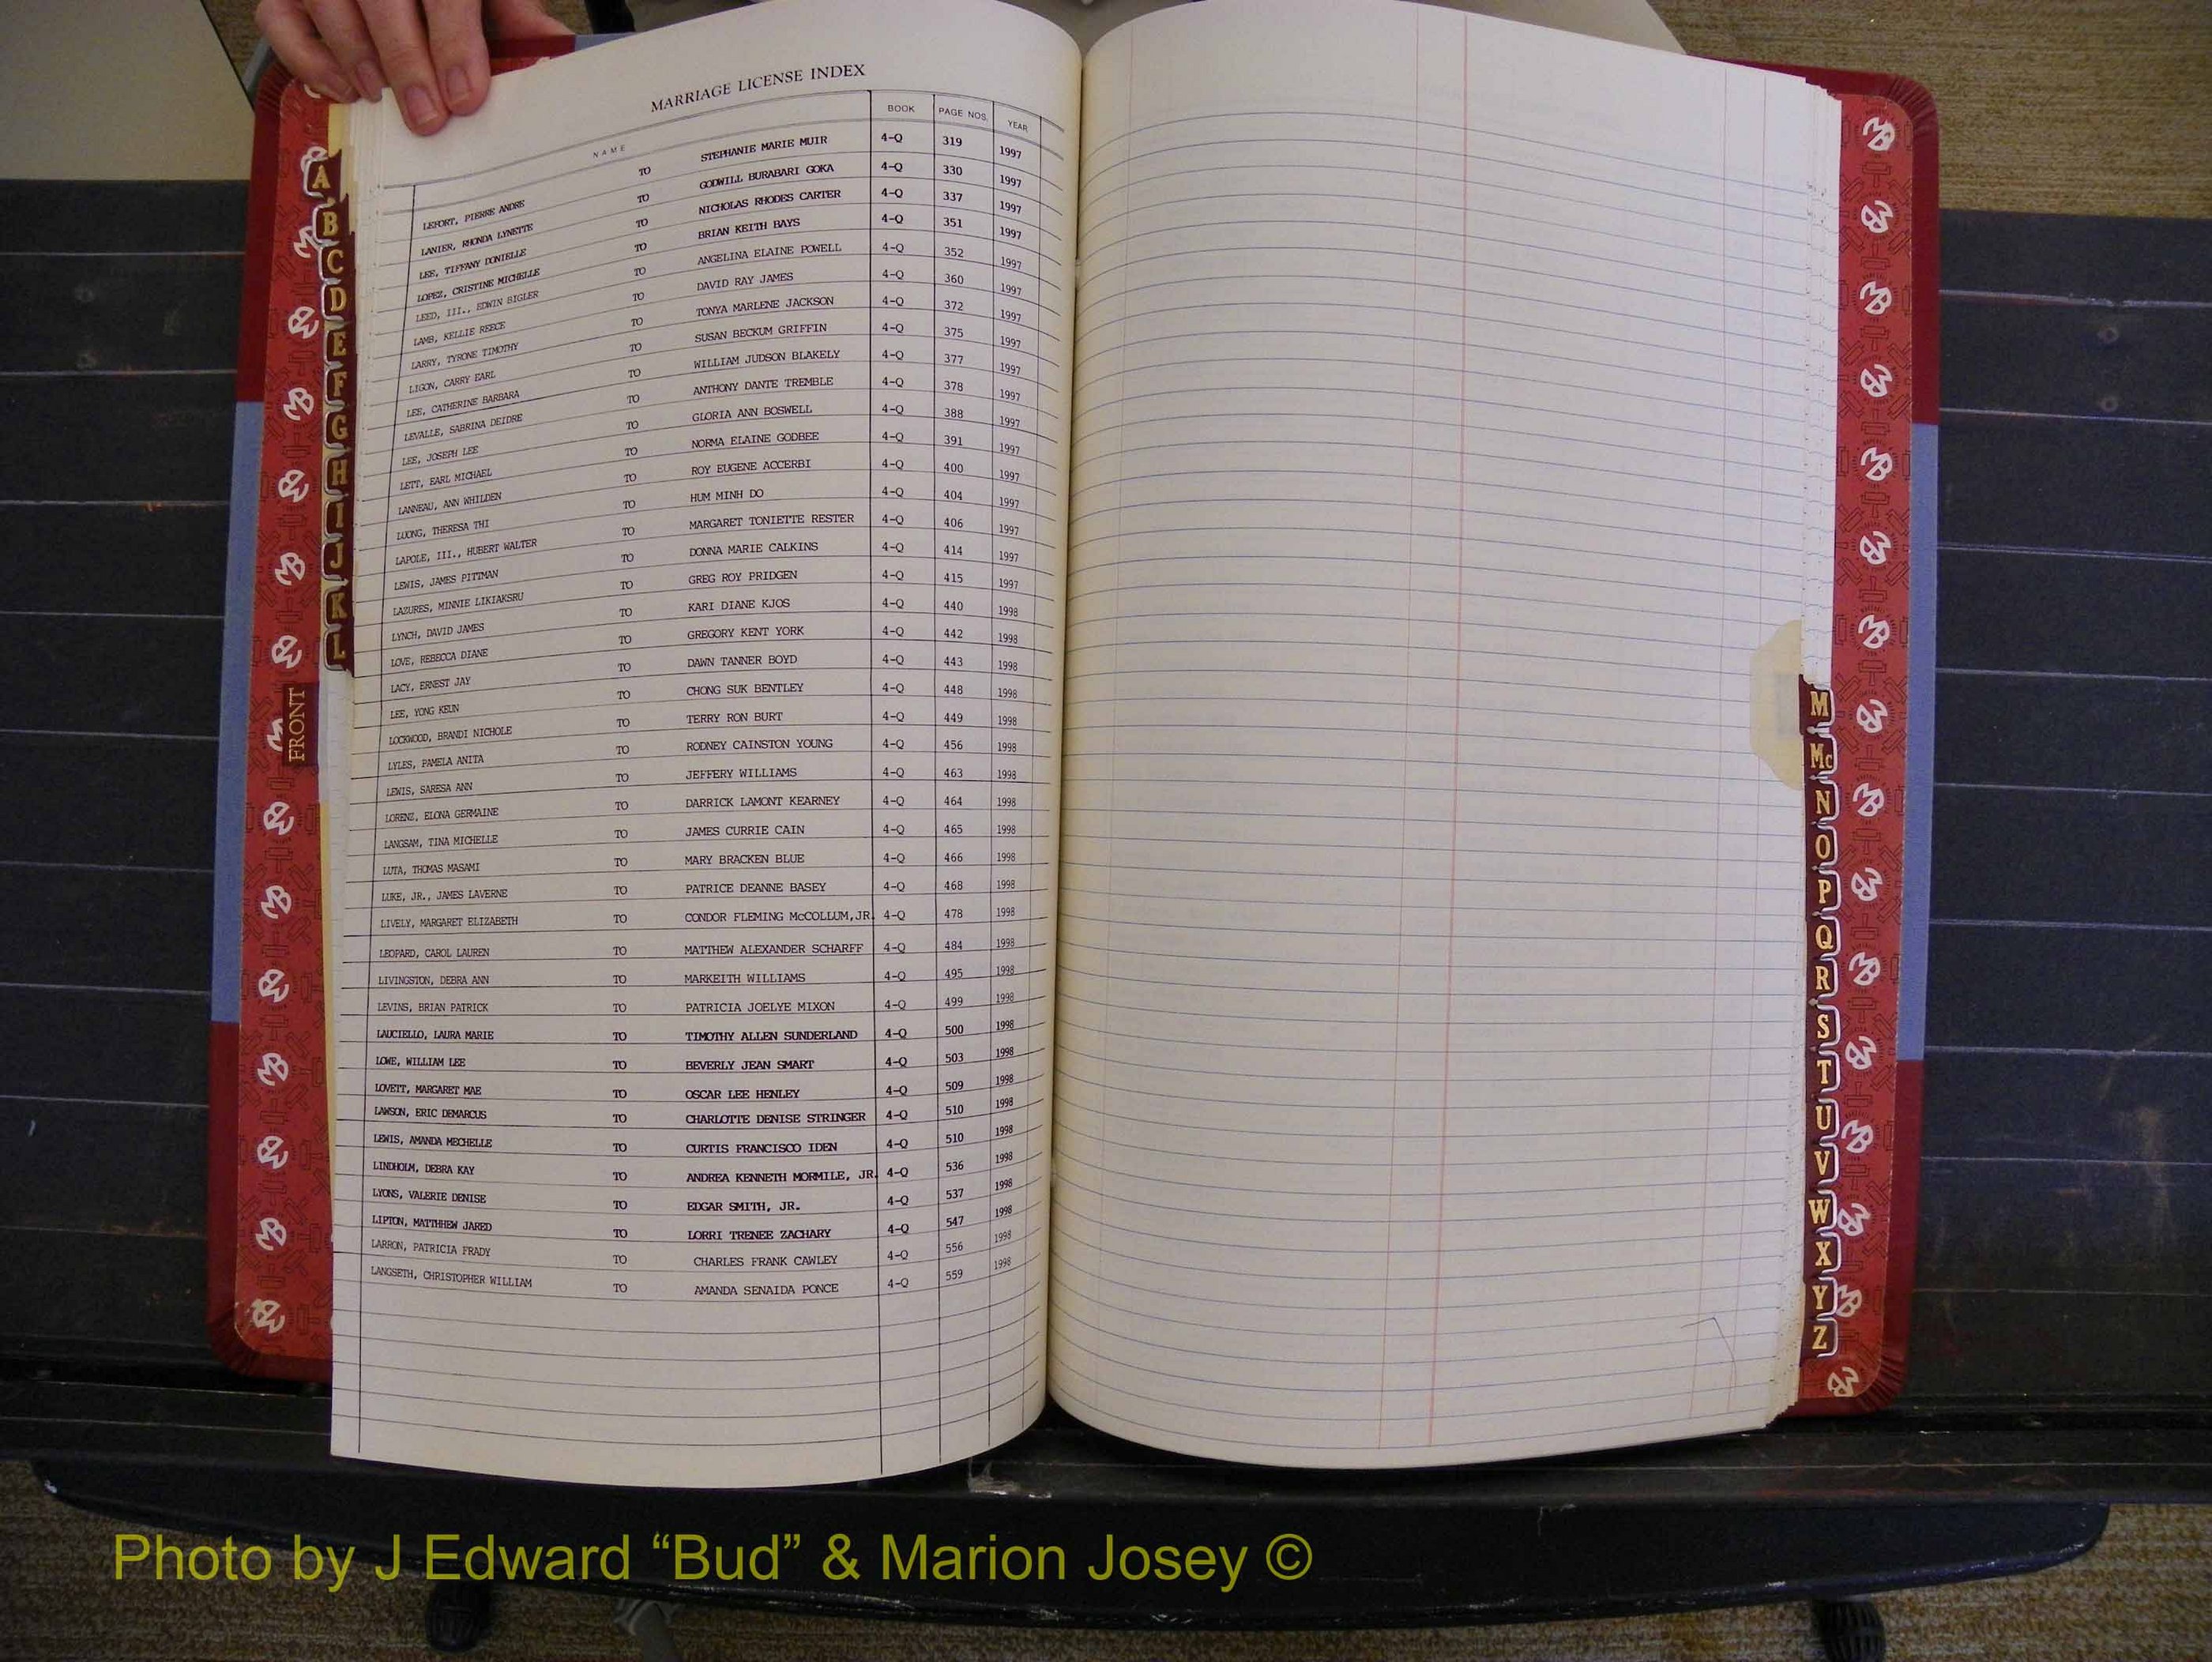 MARRIAGE LICENSE INDEX
NAME BOOK PAGE NOS. YEAR
LEFORT, PIERRE ANDRE TO STEPHANIE MARIE MUIR 4-Q 319 1997
LANIER, RHONDA LYNETTE TO GODWILL BURABARI GOKA 4-Q 330 1997
LEE, TIFFANY DONIELLE TO NICHOLAS RHODES CARTER 4-Q 337 1997
LOPEZ, CRISTINE MICHELLE TO BRIAN KEITH BAYS 4-Q 351 1997
LEED, III., EDWIN BIGLER TO ANGELINA ELAINE POWELL 4-Q 352 1997
LAMB, KELLIE REECE TO DAVID RAY JAMES 4-Q 360 1997
LARRY, TYRONE TIMOTHY TO TONYA MARLENE JACKSON 4-Q 372 1997
LIGON, CARRY EARL TO SUSAN BECKUM GRIFFIN 4-Q 375 1997
LEE, CATHERINE BARBARA TO WILLIAM JUDSON BLAKELY 4-Q 377 1997
LEVALLE, SABRINA DEIDRE TO ANTHONY DANTE TREMBLE 4-Q 378 1997
LEE, JOSEPH LEE TO GLORIA ANN BOSWELL 4-Q 388 1997
LETT, EARL MICHAEL TO NORMA ELAINE GODBEE 4-Q 391 1997
LANNEAU, ANN WHILDEN TO ROY EUGENE ACCERBI 4-Q 400 1997
LUONG, THERESA THI TO HUM MINH DO 4-Q 404 1997
LAPOLE, III., HUBERT WALTER TO MARGARET TONIETTE RESTER 4-Q 406 1997
LEWIS, JAMES PITTMAN TO DONNA MARIE CALKINS 4-Q 414 1997
LAZURES, MINNIE LIKIAKSRU TO GREG ROY PRIDGEN 4-Q 415 1997
LYNCH, DAVID JAMES TO KARI DIANE KJOS 4-Q 440 1998
LOVE, REBECCA DIANE TO GREGORY KENT YORK 4-Q 442 1998
LACY, ERNEST JAY TO DAWN TANNER BOYD 4-Q 443 1998
LEE, YONG KEUN TO CHONG SUK BENTLEY 4-Q 448 1998
LOCKWOOD, BRANDI NICHOLE TO TERRY RON BURT 4-Q 449 1998
LYLES, PAMELA ANITA TO RODNEY CAINSTON YOUNG 4-Q 456 1998
LEWIS, SARESA ANN TO JEFFERY WILLIAMS 4-Q 463 1998
LORENZ, ELONA GERMAINE TO DARRICK LAMONT KEARNEY 4-Q 464 1998
LANGSAM, TINA MICHELLE TO JAMES CURRIE CAIN 4-Q 465 1998
LUTA, THOMAS MASAMI TO MARY BRACKEN BLUE 4-Q 466 1998
LUKE, JR., JAMES LAVERNE TO PATRICE DEANNE BASEY 4-Q 468 1998
LIVELY, MARGARET ELIZABETH TO CONDOR FLEMING McCOLLUM, JR. 4-Q 478 1998
LEOPARD, CAROL LAUREN TO MATTHEW ALEXANDER SCHARFF 4-Q 484 1998
LIVINGSTON, DEBRA ANN TO MARKEITH WILLIAMS 4-Q 495 1998
LEVINS, BRIAN PATRICK TO PATRICIA JOELYE MIXON 4-Q 499 1998
LAUCIELLO, LAURA MARIE TO TIMOTHY ALLEN SUNDERLAND 4-Q 500 1998
LOWE, WILLIAM LEE TO BEVERLY JEAN SMART 4-Q 503 1998
LOVETT, MARGARET MAE TO OSCAR LEE HENLEY 4-Q 509 1998
LAWSON, ERIC DEMARCUS TO CHARLOTTE DENISE STRINGER 4-Q 510 1998
LEWIS, AMANDA MECHELLE TO CURTIS FRANCISCO IDEN 4-Q 510 1998
LINDHOLM, DEBRA KAY TO ANDREA KENNETH MORMILE, JR. 4-Q 536 1998
LYONS, VALERIE DENISE TO EDGAR SMITH, JR. 4-Q 537 1998
LIPTON, MATTHHEW JARED TO LORRI TRENEE ZACHARY 4-Q 547 1998
LARRON, PATRICIA FRADY TO CHARLES FRANK CAWLEY 4-Q 556 1998
LANGSETH, CHRISTOPHER WILLIAM TO AMANDA SENAIDA PONCE 4-Q 559 1998
A
B
C
D
E
F
G
H
I
J
K
L
FRONT
M
Mc
N
O
P
Q
R
S
T
U
V
W
X
Y
Z
Photo by J Edward “Bud” & Marion Josey ©